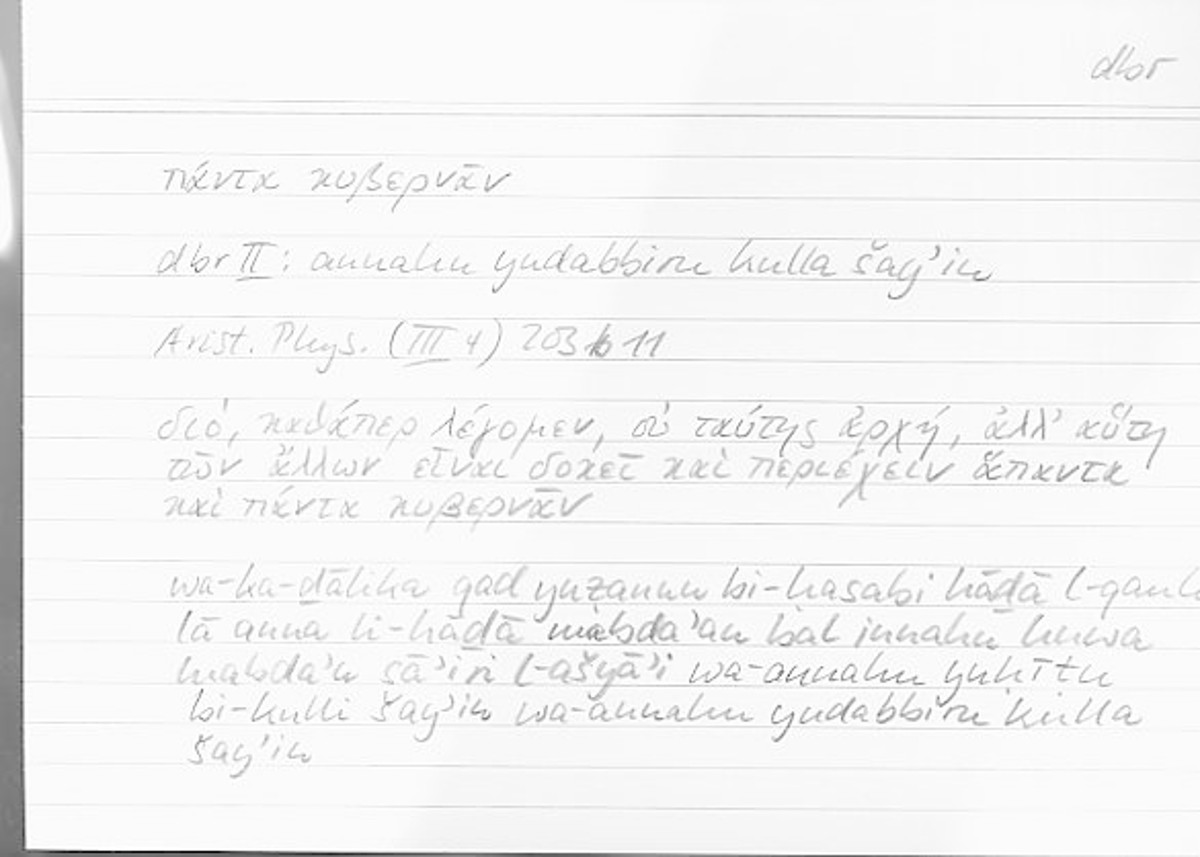 dbr
πάντα κυβερνᾶν
dbr II: annahu yudabbiru kulla šay'in
Arist. Phys. (III 4) 203 b 11
διό, καθάπερ λέγομεν, οὐ ταύτης ἀρχή, ἀλλ' αὕτη
τῶν ἄλλων εἶναι δοκεῖ καὶ περιέχειν ἅπαντα
καὶ πάντα κυβερνᾶν
wa-ka-ḏālika qad yuẓannu bi-ḥasabi hāḏā l-qauli
lā anna li-hāḏā mabda'an bal innahū huwa
mabda'u sā'iri l-ašyā'i wa-annahu yuḥīṭu
bi-kulli šay'in wa-annahu yudabbiru kulla
šay'in